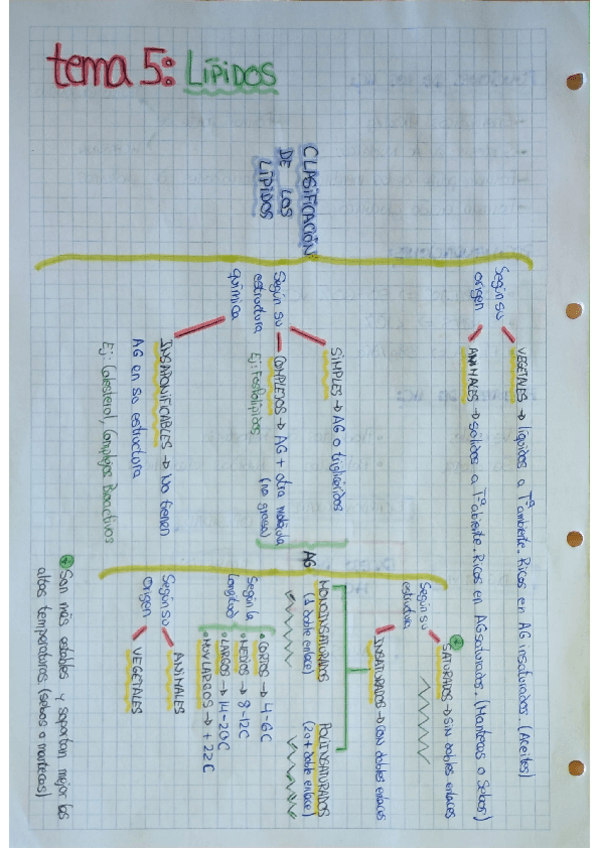 tema 5: LÍPIDOS
CLASIFICACIÓN
DE LOS
LÍPIDOS
Según su
origen
VEGETALES → líquidos a Tª ambiente. Ricos en AG insaturados. (Aceites)
ANIMALES → sólidos a Tª abiente. Ricos en AG saturados. (Mantecas o Sebos)
Según su
estructura
química
SIMPLES → AG o triglicéridos
COMPLEJOS → AG + otra molécula
(no grasa)
Ej: Fosfolípidos
INSAPONIFICABLES → No tienen
AG en su estructura
Ej: Colesterol, Complejos Bioactivos
AG
Según su
estructura
SATURADOS → SIN dobles enlaces
INSATURADOS → CON dobles enlaces
MONOINSATURADOS
(1 doble enlace)
POLIINSATURADOS
(2 o + doble enlace)
Según la
Longitud
CORTOS → 4-6C
MEDIOS → 8-12C
LARGOS → 14-20C
MUY LARGOS → + 22C
Según su
Origen
ANIMALES
VEGETALES
* Son más estables y soportan mejor las
altas temperaturas. (sebos o mantecas)